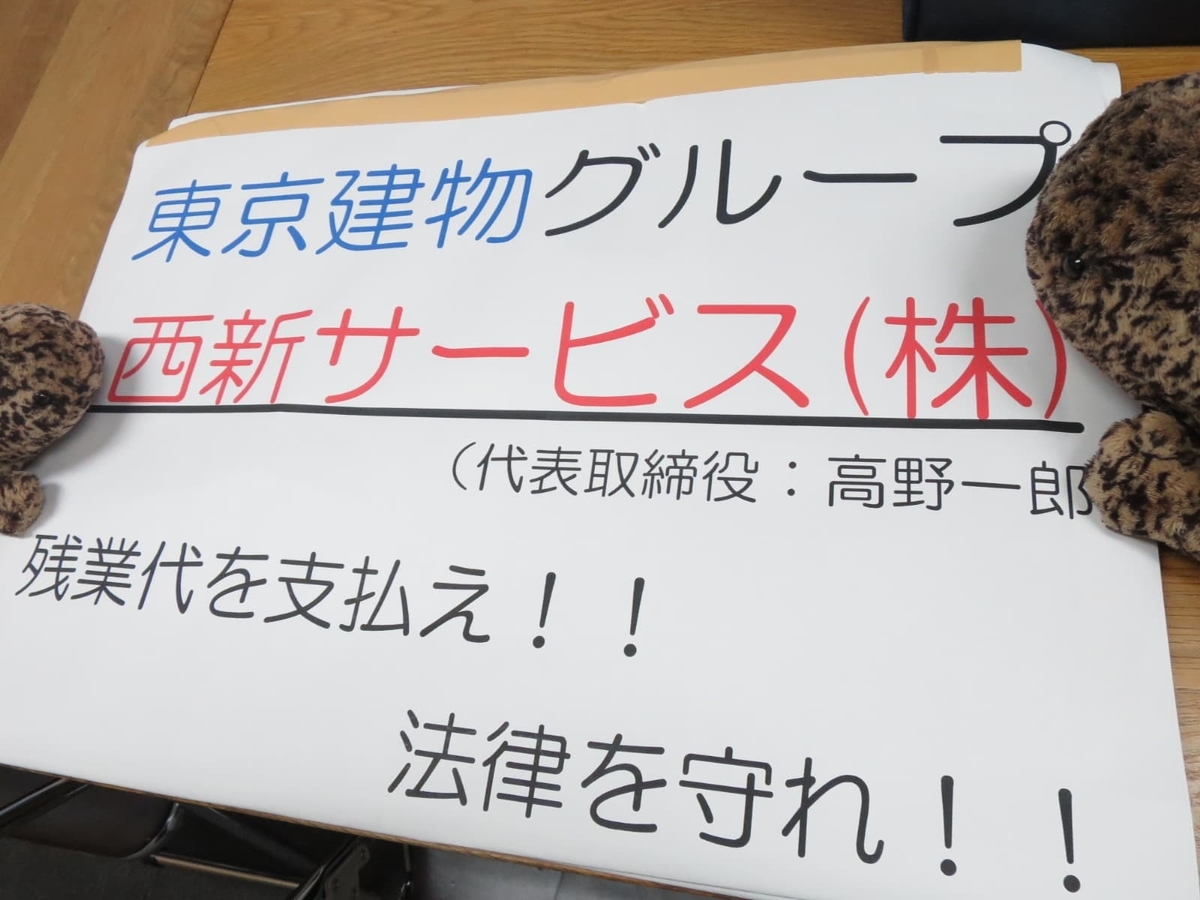 東京建物グループ
西新サービス(株)
(代表取締役：高野一郎
残業代を支払え！！
法律を守れ！！